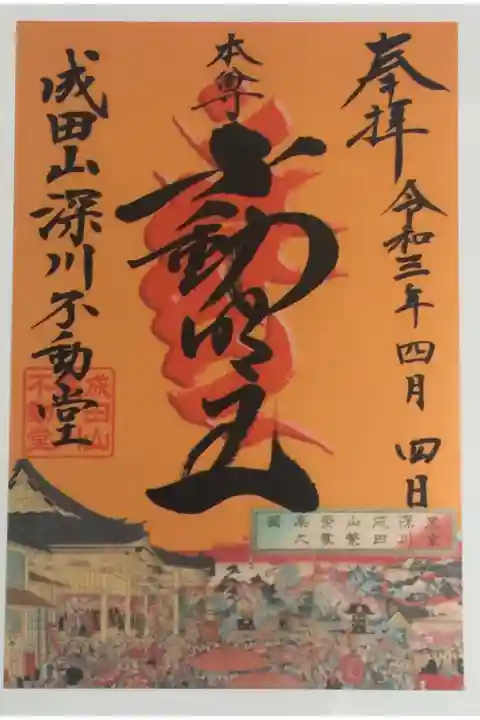 奉拝
令和三年四月四日
本尊
不動明王
成田山深川不動堂
成田山
不動堂
東京
深川
成田
山繁
栄賑
集大
圖